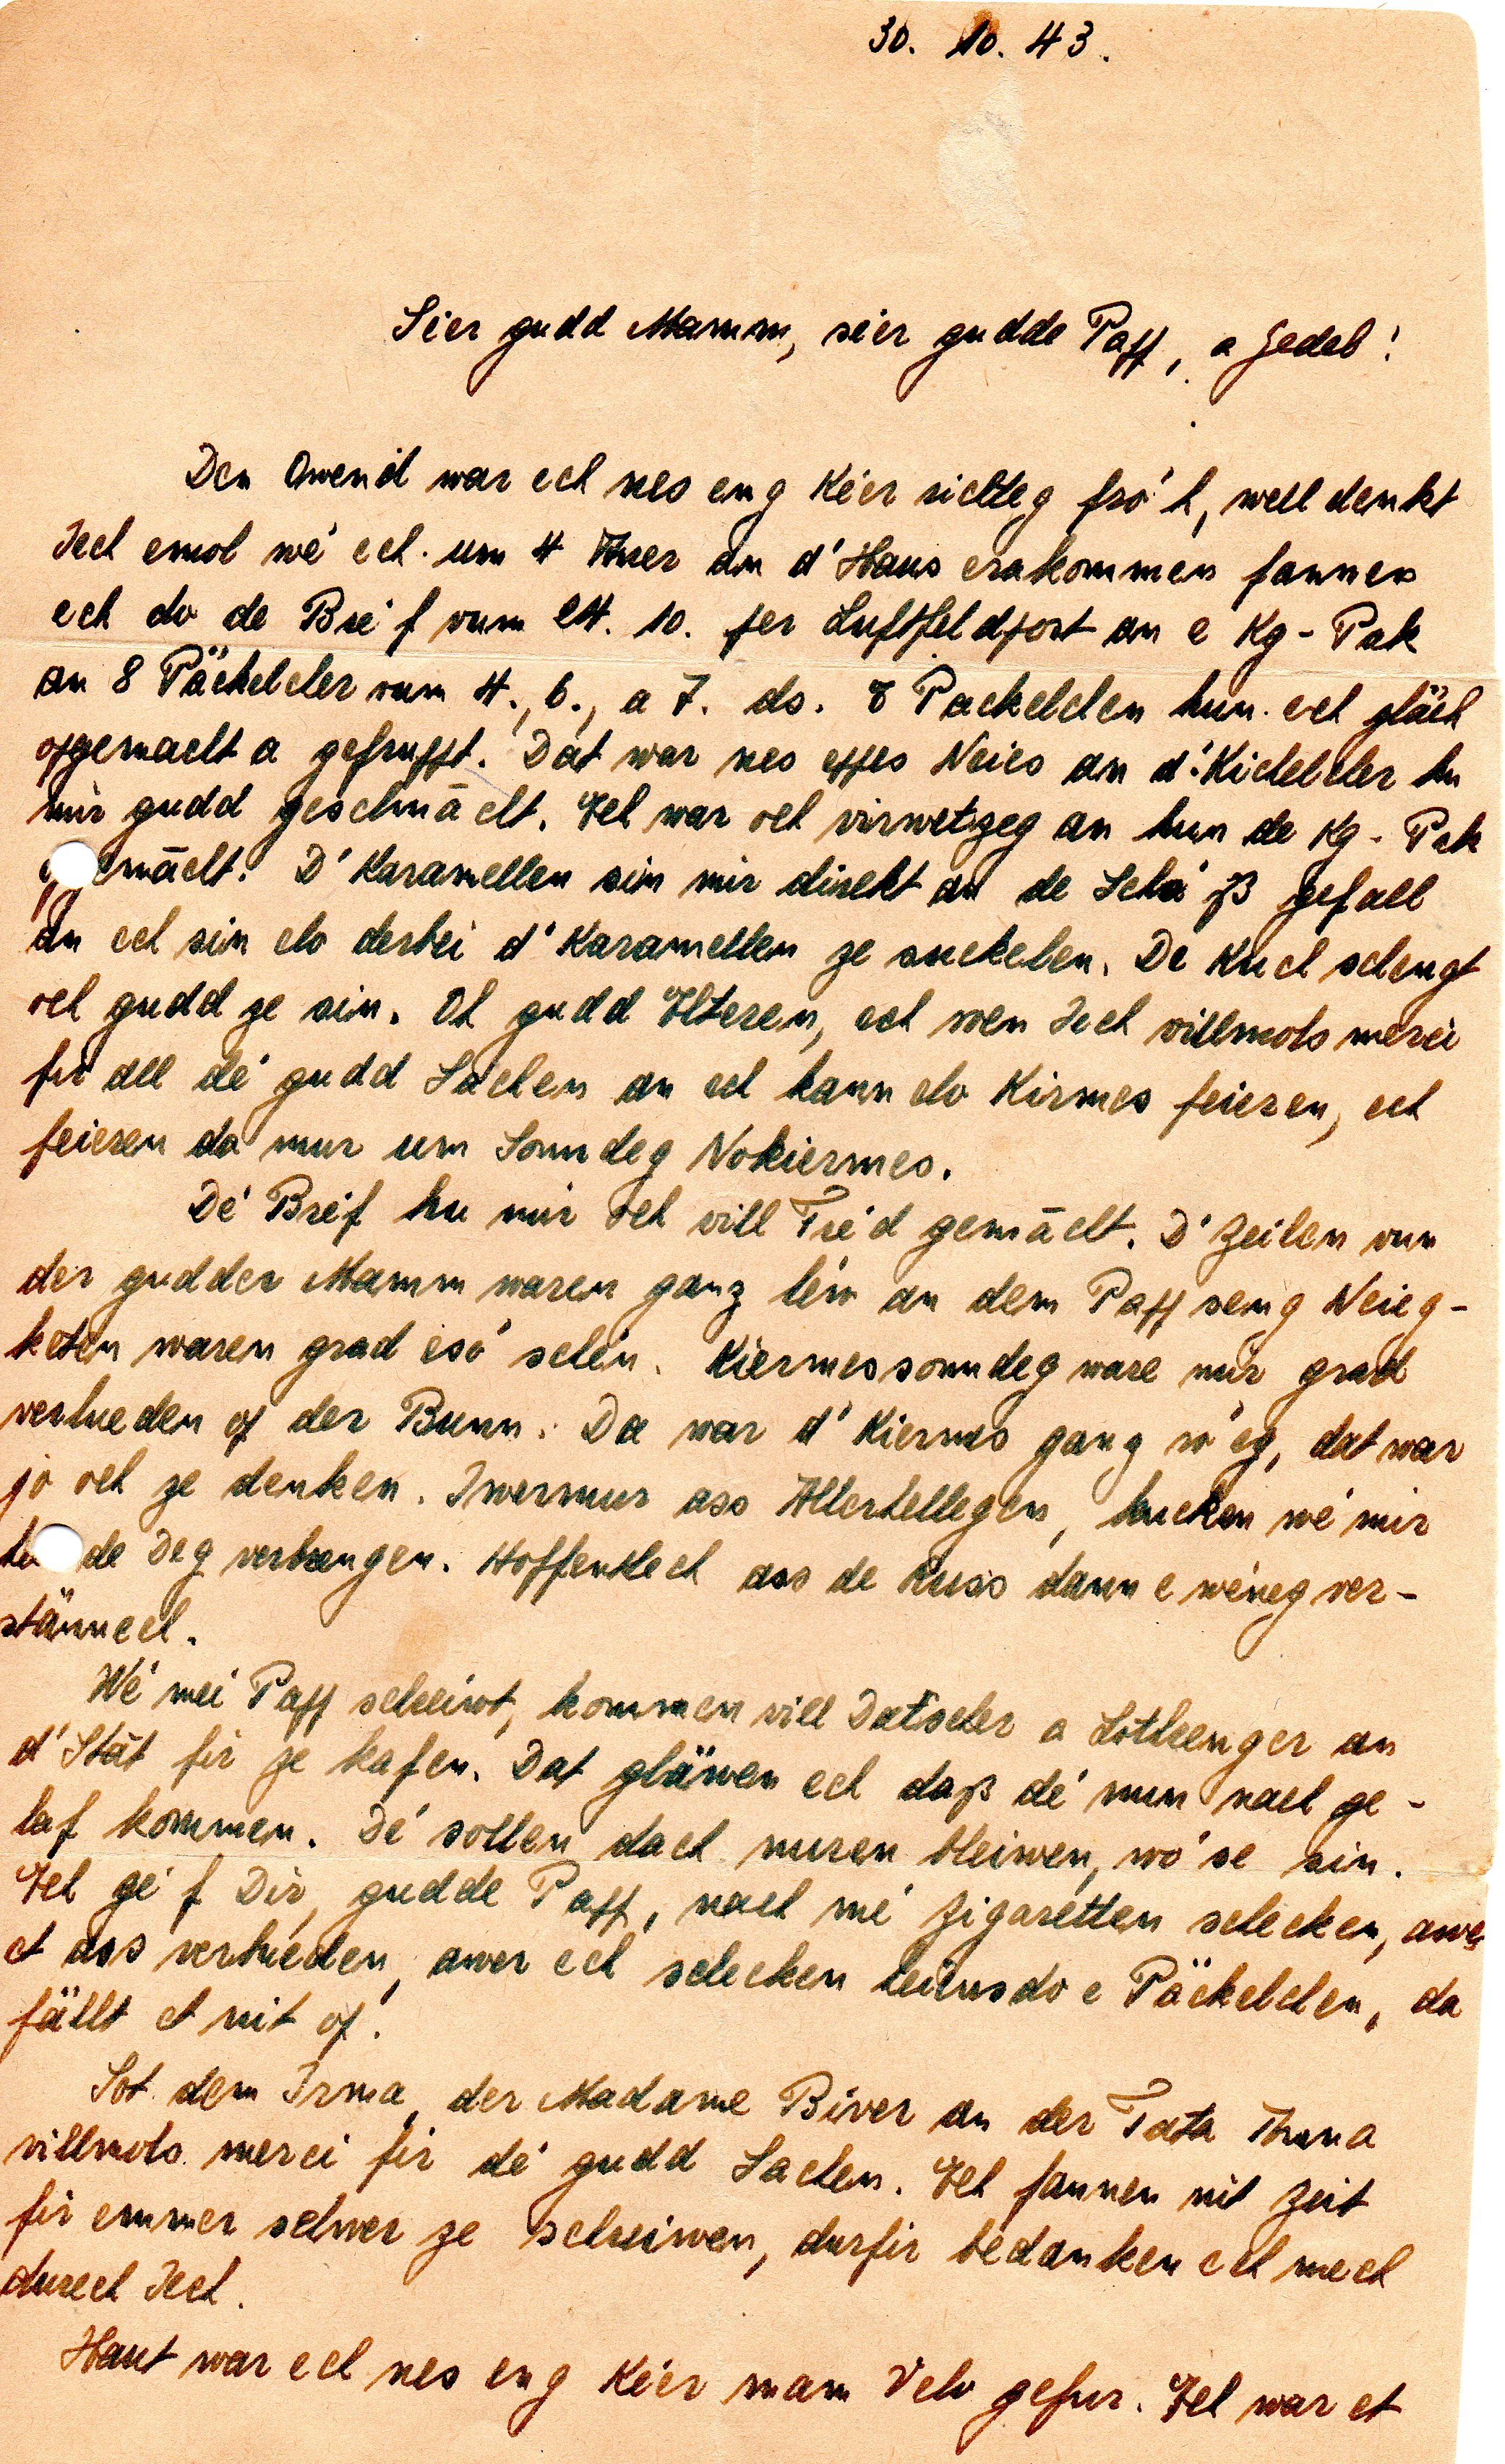 30. 10. 43.
Sier gudd Mamm, sier gudde Papp, a Jedeb!
Den Owend war ech nes eng Kéer richteg fro'h, well denkt
Iech emol wé ech um 4 Auer an d'Haus erakommen fannen
ech do de Bréf vum 24. 10. per Luftfeldpost an e Kg-Pak
an 8 Päckelcher vum 4., 6., a 7. ds. 8 Päckelchen hun ech gläich
opgemacht a gefrupft. Dat war nes eppes Neies an d'Kichelcher hu
mir gudd geschmācht. Ech war och virwetzeg an hun de Kg-Pak
opgemācht. D'Karamellen sin mir direkt an de Scho'ß gefall
an ech sin elo derbei d'Karamellen ze suckelen. De Kuch schengt
och gudd ze sin. Oh gudd Elteren, ech soen Iech villmols merci
fir all dé gudd Sachen an ech kann elo Kirmes feieren, ech
feieren da mur um Sonndeg Nokiermes.
Dé Bréf hu mir och vill Fréd gemācht. D'Zeilen vun
der gudder Mamm waren ganz léw an dem Papp seng Neieg-
keten waren grad eso' schén. Kiermessonndeg ware mir grad
verlueden op der Bunn. Do war d'Kiermes ganz wéeg, dat war
jo och ze denken. Iwermuer ass Allerhellegen, kucken wé mir
de Deg verbrengen. Hoffentlech ass de Russ dann e wéneg ver-
stännech.
Wé mei Papp schreiwt, kommen vill Däitscher a Lothrenger an
d'Stāt fir ze kafen. Dat gläwen ech daß dé nun nach ge-
laf kommen. Dé sollen dach nuren bleiwen, wo' se sin.
Ech gé'f Dir, gudde Papp, nach mé Zigaretten schecken, awer
et ass verbueden, awer ech schecken heiansdo e Päckelchen, da
fällt et nit op.
Sot dem Irma, der Madame Biver an der Tata Anna
villmols merci fir dé gudd Sachen. Ech fannen nit Zeit
fir emmer selwer ze schreiwen, durfir bedanken ech mech
durech Iech.
Haut war ech nes eng Kéer mam Velo gefuer. Ech war et